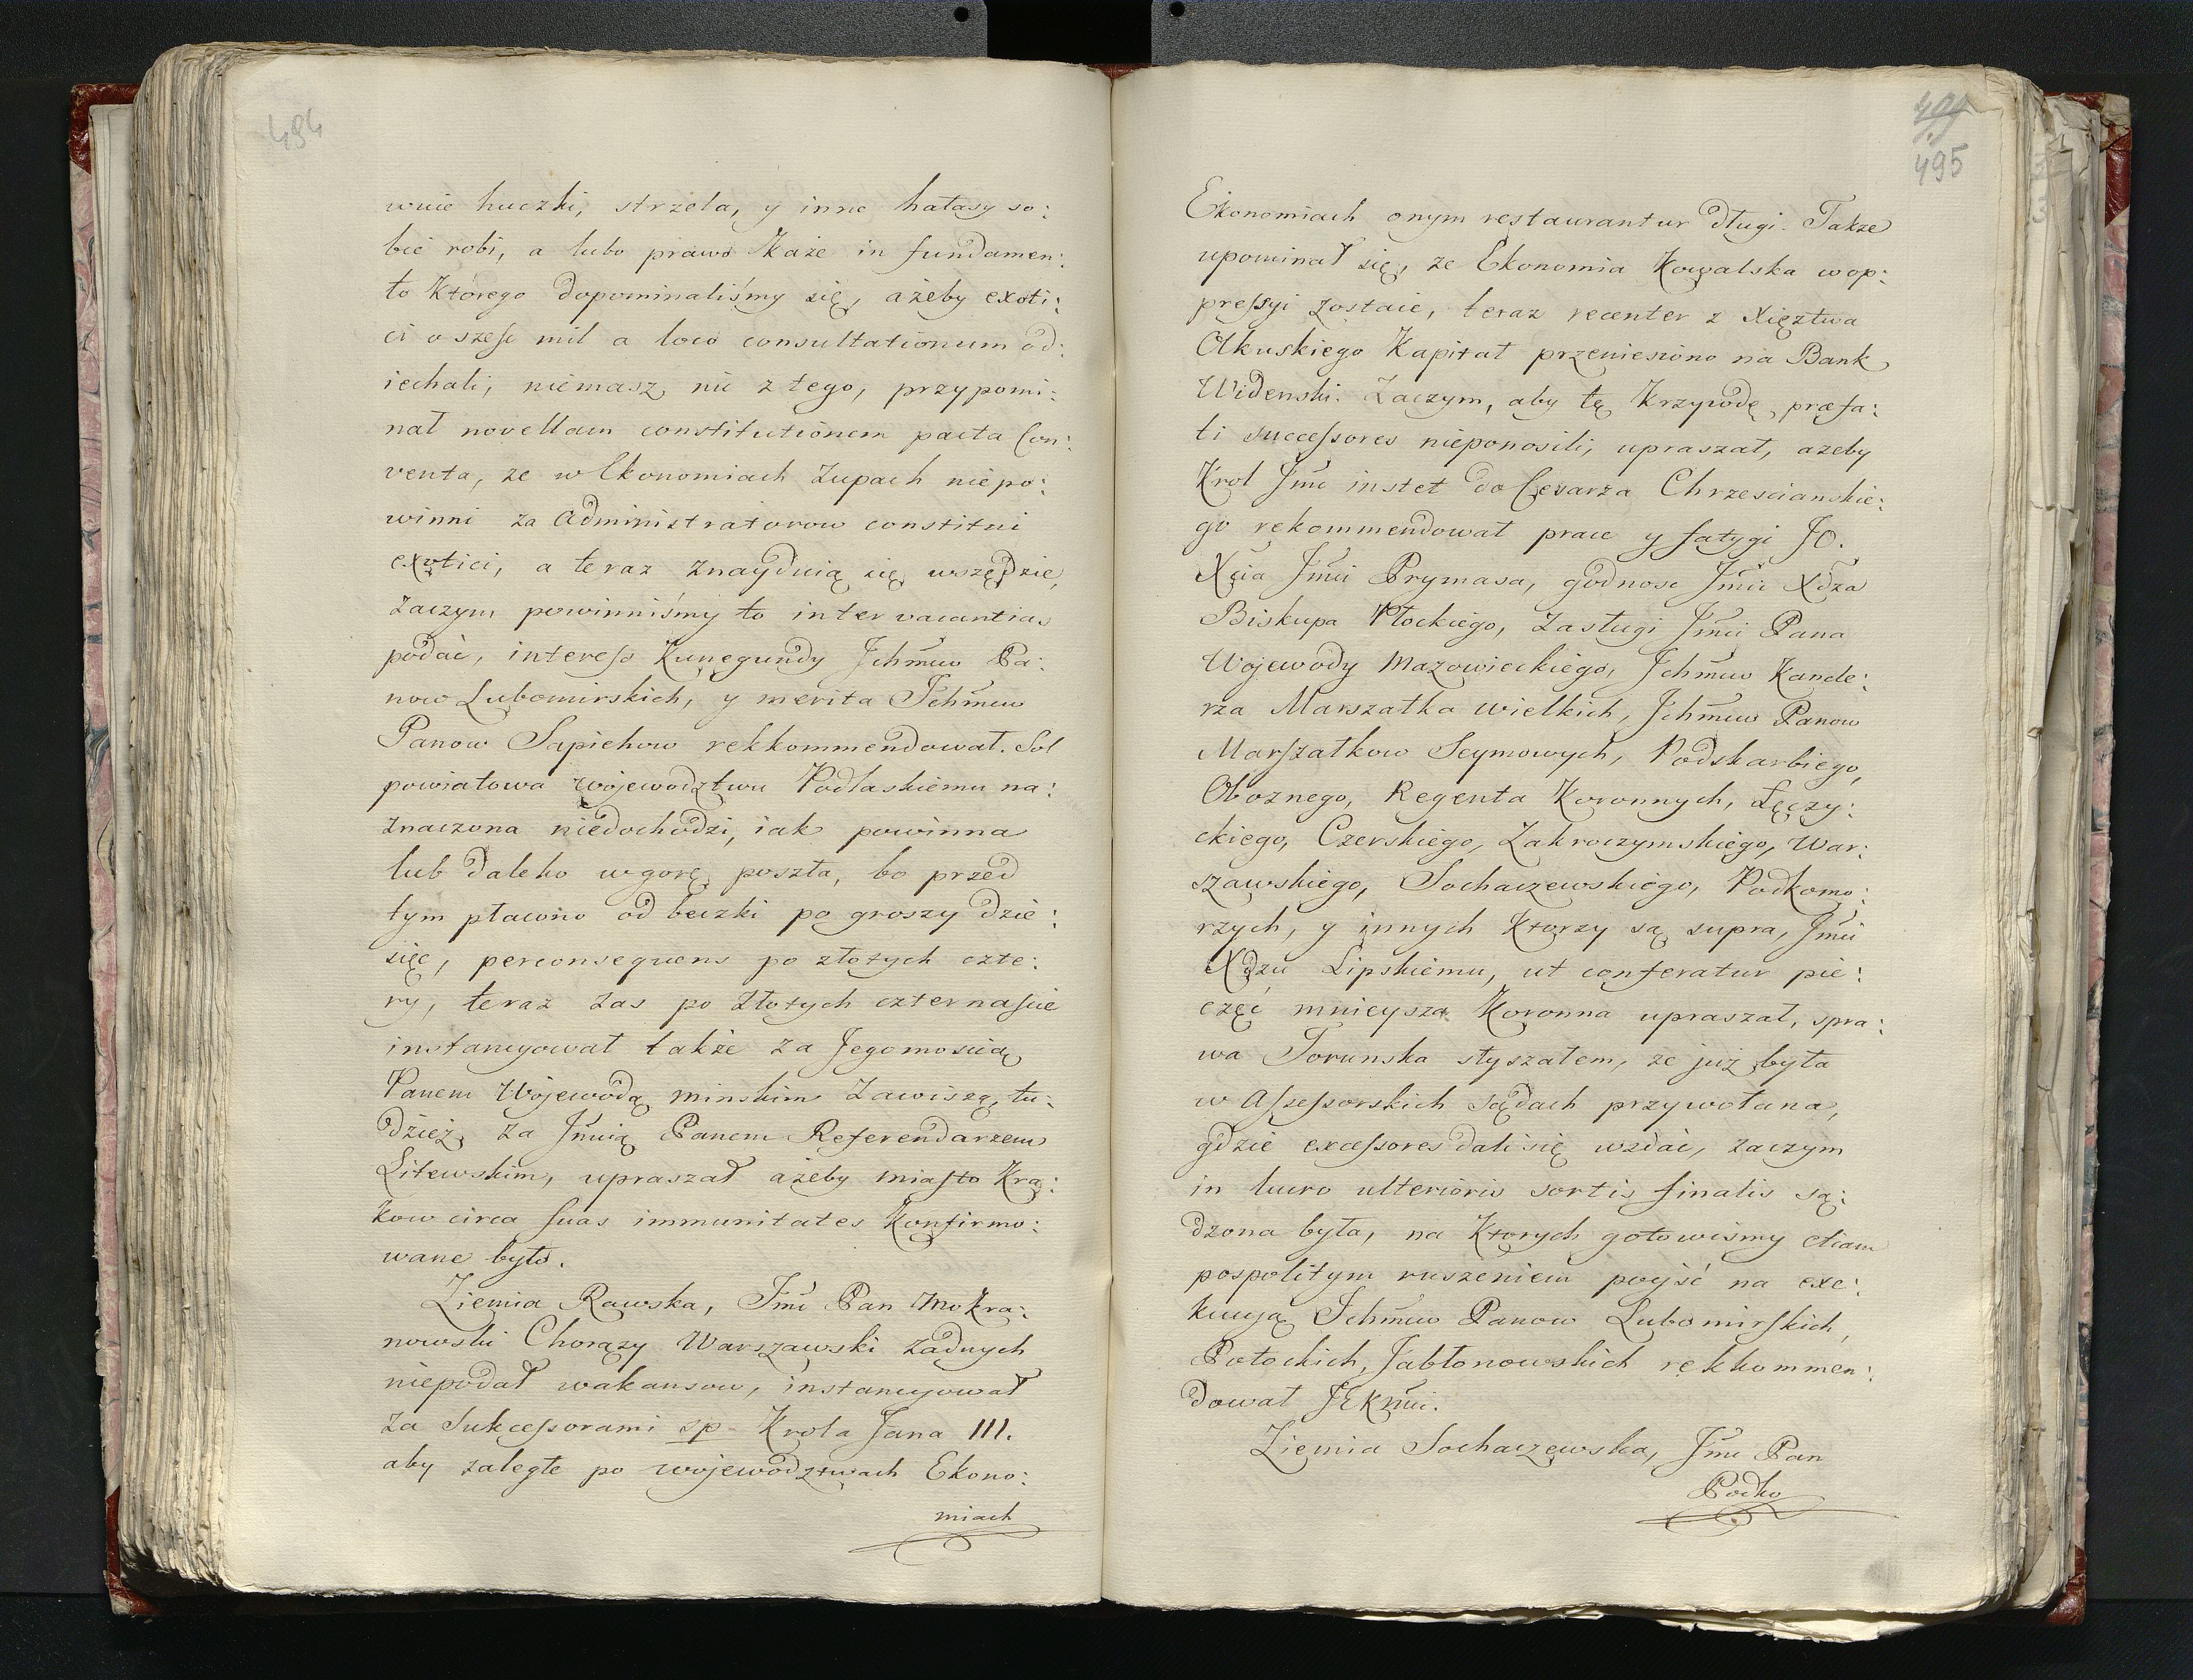 494
wnie huczki, strzela, y inne hałasy so:
bie robi, a lubo prawo każe in fundamen:
to którego dopominaliśmy się, ażeby exoti:
ci o szesc mil a loco consultationum od:
iechali, niemasz nic z tego, przypomi:
nał novellam constitutionem pacta Con:
venta, ze w Ekonomiach Zupach niepo:
winni za Administratorow constitui
exotici, a teraz znayduią się wszędzie,
Zaczym powinniśmy to inter vacantias
podać, interess Kunegundy Jchmcw Pa:
now Lubomirskich, y merita Jchmcw
Panow Sapiehow rekkommendował. Sol
powiatowa wojewodztwu Podlaskiemu na:
znaczona niedochodzi, iak powinna
lub daleko wgorę poszła, bo przed
tym płacono od beczki po groszy dzie:
sięc, perconsequens po złotych czte:
ry, teraz zas po złotych czternascie
instancyował także za Jegomoscią
Panem Wojewodą minskim Zawiszą, tu:
dzież za Jmcią Panem Referendarzem
Litewskim, upraszał ażeby miasto Kra:
kow circa suas immunitates konfirmo:
wane było.
Ziemia Rawska, Jmc Pan Mokra:
nowski Chorązy Warszawski żadnych
niepodał wakansow, instancyował
za Sukcessorami sp. Krola Jana III.
aby zaległe po wojewodztwach Ekono:
miach
495
Ekonomiach onym restaurantur długi. Takze
upominał się, ze Ekonomia Kowalska wop:
pressyi zostaie, teraz recenter z Xięztwa
Olawskiego Kapitał przeniesiono na Bank
Widenski. Zaczym, aby tę krzywdę præfa:
ti successores nieponosili, upraszał, azeby
Krol Jmc instet do Cesarza Chrzescianskie:
go rekommendował prace y fatygi JO.
Xcia Jmci Prymasa, godnosc Jmci Xdza
Biskupa Płockiego, Zasługi Jmci Pana
Wojewody Mazowieckiego, Jchmcw Kancle:
rza Marszałka wielkich, Jchmcw Panow
Marszałkow Seymowych, Podskarbiego,
Oboznego, Regenta Koronnych, Łęczy:
ckiego, Czerskiego, Zakroczymskiego, War:
szawskiego, Sochaczewskiego, Podkomo:
rzych, y innych ktorzy są supra, Jmci
Xdzu Lipskiemu, ut conferatur pie:
częć mnieysza Koronna upraszał, spra:
wa Torunska słyszałem, ze już była
w Assessorskich sądach przywołana,
gdzie excessores dali się wzdać, zaczym
in lucro ulterioris sortis finalis są:
dzona była, na ktorych gotowismy etiam
pospolitym ruszeniem pojść na exe:
kucyą Jchmcw Panow Lubomirskich,
Potockich, Jabłonowskich rekkommen:
dował JKmci.
Ziemia Sochaczewska, Jmc Pan
Podko